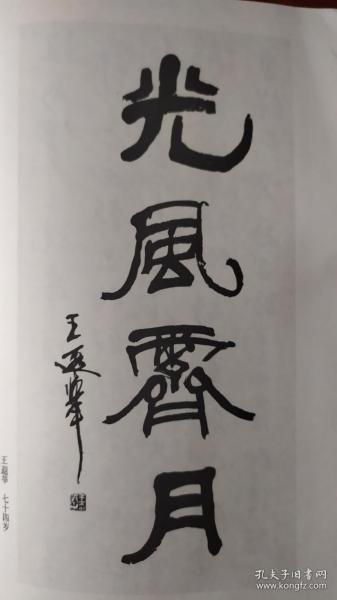 光風霽月
王遐举
王遐举 七十四岁
孔夫子旧书网
www.kongfz.com